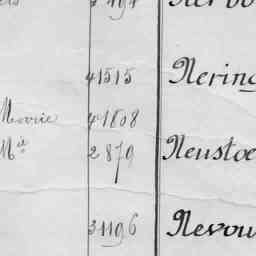 41515 Nering
Marie 41808
Mie 2879 Neustoe
31196 Nevou